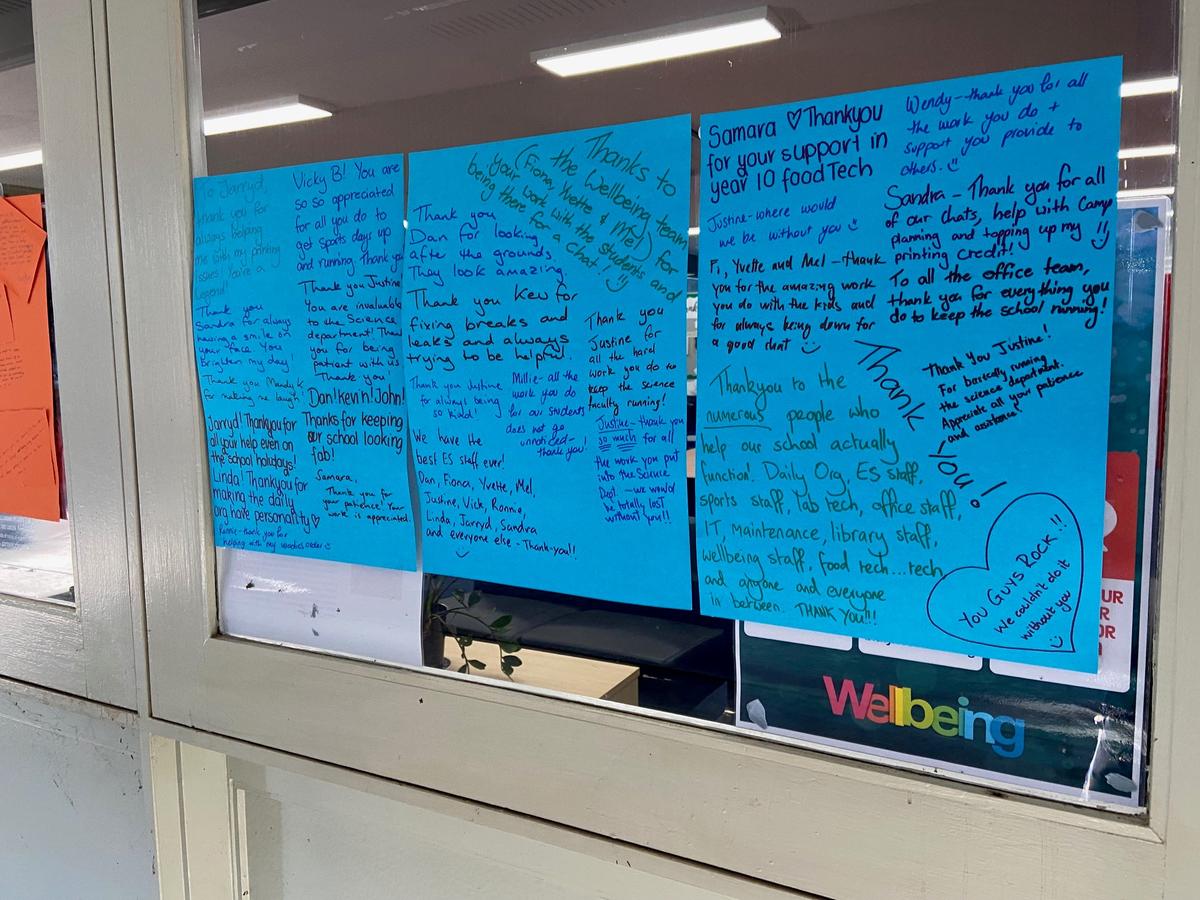 To Jarryd,
thank you for
always helping
me with my printing
issues! You're a
Legend!
Thank you
Sandra for always
having a smile on
your face. You
brighten my day!
Thank you Mandy K
for making me laugh
Jarryd! Thankyou for
all your help even on
the school holidays!
Linda! Thankyou for
making the daily
org have personality ♡
Ronnie - thank you for
helping with my woodies order ☺
Vicky B! You are
so so appreciated
for all you do to
get sports days up
and running. Thank you
Thank you Justine
You are invaluable
to the Science
department! Thank
you for being
patient with us
Thank you!
Dan! kevin! John!
Thanks for keeping
our school looking
fab!
Samara,
Thank you for
your patience! Your
work is appreciated.
Thanks to
the Wellbeing team
(Fiona, Yvette & Mel) for
your work with the students and
being there for a chat! ☺
Thank you
Dan for looking
after the grounds.
They look amazing.
Thank you Kev for
fixing breaks and
leaks and always
trying to be helpful.
Thank you Justine
for always being
so kind!
Millie - all the
work you do
for our students
does not go
unnoticed -
thank you!
Thank you
Justine for
all the hard
work you do to
keep the science
faculty running!
Justine - thank you
so much for all
the work you put
into the Science
Dept. - we would
be totally lost
without you!!
We have the
best ES staff ever!
Dan, Fiona, Yvette, Mel,
Justine, Vick, Ronnie,
Linda, Jarryd, Sandra
and everyone else - Thank-you!!
☺
Samara ♡ Thankyou
for your support in
year 10 food Tech
Wendy - thank you for all
the work you do +
support you provide to
others. ☺
Justine - where would
we be without you ☺
Sandra - Thank you for all
of our chats, help with Camp
planning and topping up my
printing credit! ☺
Fi, Yvette and Mel - thank
you for the amazing work
you do with the kids and
for always being down for
a good chat ☺
To all the office team,
thank you for everything you
do to keep the school running!
Thank
you!
Thank You Justine!
For basically running
the science department.
Appreciate all your patience
and assistance!
Thankyou to the
numerous people who
help our school actually
function! Daily Org, ES staff,
sports staff, lab tech, office staff,
IT, maintenance, library staff,
wellbeing staff, food tech... tech
and anyone and everyone
in between. THANK YOU!!!
You Guys Rock!!
We couldn't do it
without you
☺
Wellbeing